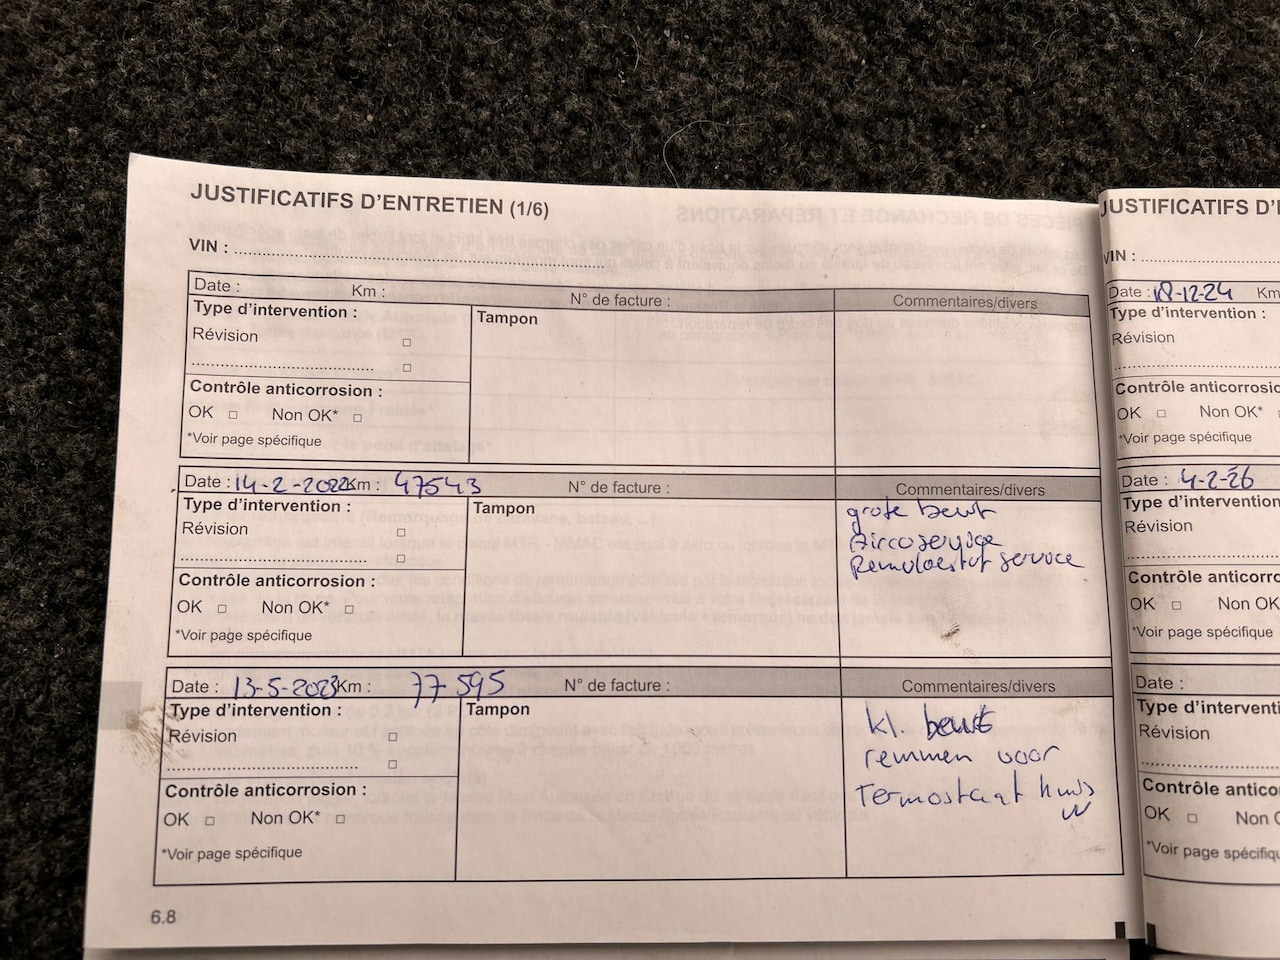 JUSTIFICATIFS D'ENTRETIEN (1/6)
VIN :
Date : Km : N° de facture : Commentaires/divers
Type d'intervention : Tampon
Révision
Contrôle anticorrosion :
OK Non OK*
*Voir page spécifique
Date : 14-2-2022 Km : 47543 N° de facture : Commentaires/divers
Type d'intervention : Tampon
grote beurt
Révision
Aircoservice
Remvloeistof service
Contrôle anticorrosion :
OK Non OK*
*Voir page spécifique
Date : 13-5-2023 Km : 77595 N° de facture : Commentaires/divers
Type d'intervention : Tampon
kl. beurt
Révision
remmen voor
Termostaat huis
Contrôle anticorrosion :
OK Non OK*
*Voir page spécifique
6.8
JUSTIFICATIFS D'
VIN :
Date : 18-12-24 Km
Type d'intervention :
Révision
Contrôle anticorrosio
OK Non OK*
*Voir page spécifique
Date : 4-2-26
Type d'intervention
Révision
Contrôle anticorro
OK Non OK
*Voir page spécifique
Date :
Type d'interventi
Révision
Contrôle antico
OK Non
*Voir page spécifiq